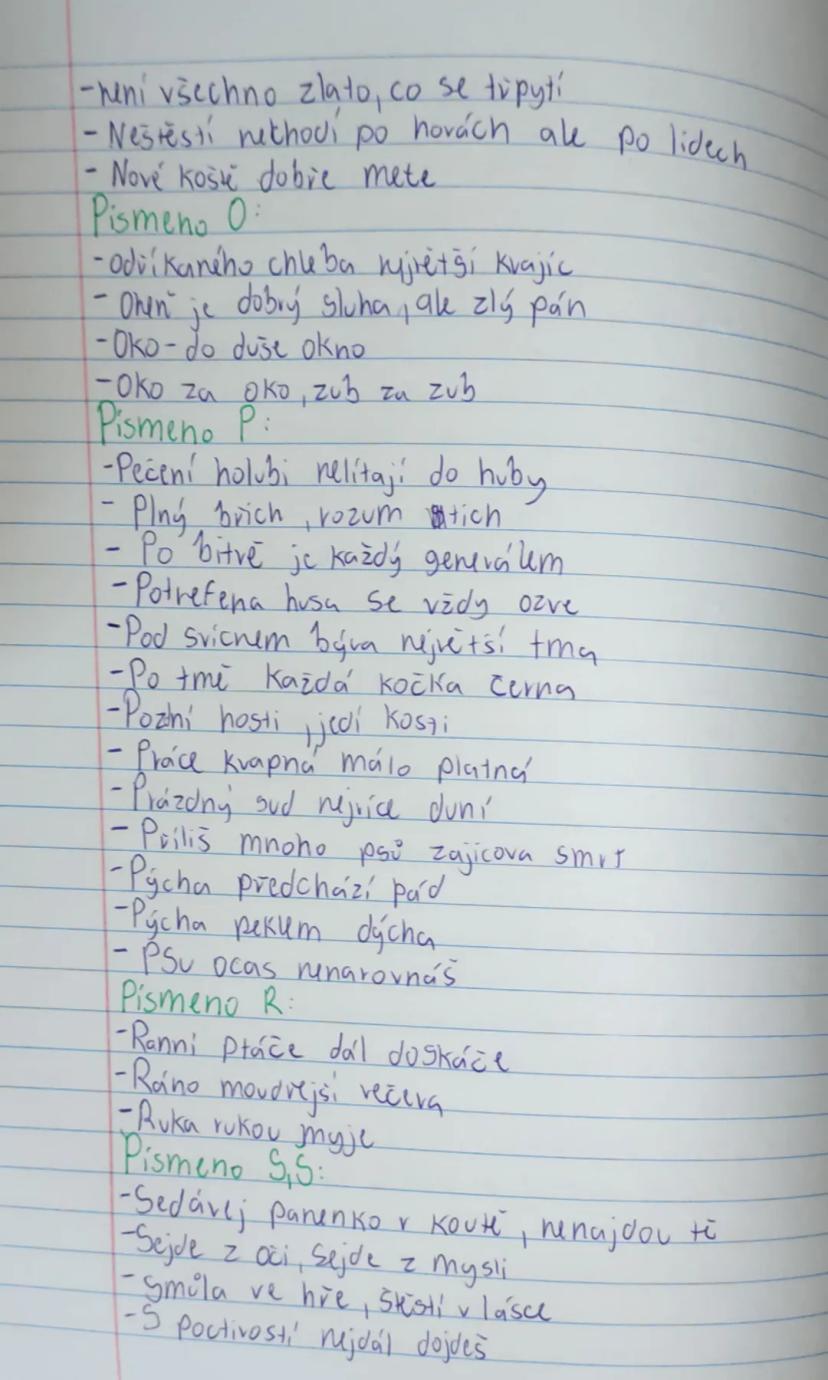 -není všechno zlato, co se třpytí
- Neštěstí nechodí po horách ale po lidech
- Nové koště dobře mete
Písmeno O:
-odříkaného chleba největší krajíc
- Oheň je dobrý sluha, ale zlý pán
-Oko-do duše okno
-Oko za oko, zub za zub
Písmeno P:
-Pečení holubi nelítají do huby
- Plný břich, rozum tich
- Po bitvě je každý generálem
-Potrefena husa se vždy ozve
-Pod svicnem býva největší tma
-Po tmě každá kočka černa
-Pozní hosti, jedí kosti
- Práce kvapná málo platná
-Prázdný sud nejvíce duní
- Příliš mnoho psů zajicova smrt
-Pýcha předchází pád
-Pýcha peklem dýcha
- Psu ocas nenarovnáš
Písmeno R:
-Ranní ptáče dál doskáče
-Ráno moudrejší večera
-Ruka rukou myje
Písmeno S,Š:
-Sedávej panenko v koutě, nenajdou tě
-Sejde z oči, sejde z mysli
-Smůla ve hře, štěstí v lásce
-S poctivostí nejdál dojdeš